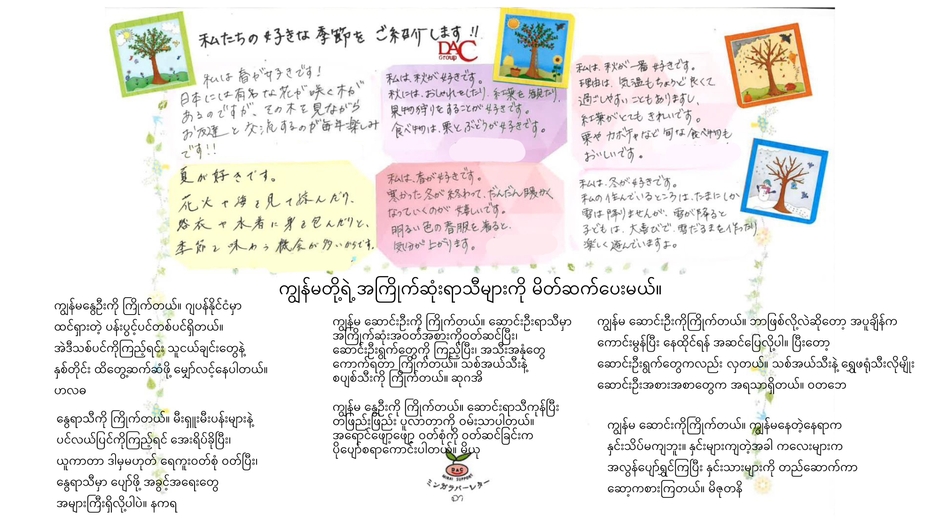 私たちの好きな季節をご紹介します!!
DAC
Group
私は春が好きです!
日本には有名な花が咲く木が
あるのですが、その木を見ながら
お友達と交流するのが毎年楽しみ
です!!
私は、秋が好きです。
秋には、おしゃれをしたり、紅葉を観たり、
果物狩りをすることが好きです。
食べ物は、栗とぶどうが好きです。
私は、秋が一番好きです。
理由は、気温もちょうど良くて
過ごしやすいこともありますし、
紅葉がとてもきれいです。
栗やカボチャなど旬な食べ物も
おいしいです。
夏が好きです。
花火や海を見て涼んだり、
浴衣や水着に身を包んだりと、
季節を味わう機会が多いからです。
私は、春が好きです。
寒かった冬が終わって、だんだん暖かく
なっていくのが嬉しいです。
明るい色の春服を着ると、
気分が上がります。
私は、冬が好きです。
私の住んでいるところは、たまにしか
雪は降りませんが、雪が降ると
子どもは、大喜びで、雪だるまを作ったり
楽しく遊んでいますよ。
ကျွန်မတို့ရဲ့ အကြိုက်ဆုံးရာသီများကို မိတ်ဆက်ပေးမယ်။
ကျွန်မနွေဦးကို ကြိုက်တယ်။ ဂျပန်နိုင်ငံမှာ
ထင်ရှားတဲ့ ပန်းပွင့်ပင်တစ်ပင်ရှိတယ်။
အဲဒီသစ်ပင်ကိုကြည့်ရင်း သူငယ်ချင်းတွေနဲ့
နှစ်တိုင်း ထိတွေ့ဆက်ဆံဖို့ မျှော်လင့်နေပါတယ်။
ဟလဓ
နွေရာသီကို ကြိုက်တယ်။ မီးရှူးမီးပန်းများနဲ့
ပင်လယ်ပြင်ကိုကြည့်ရင် အေးရိပ်ခိုပြီး၊
ယူကာတာ ဒါမှမဟုတ် ရေကူးဝတ်စုံ ဝတ်ပြီး၊
နွေရာသီမှာ ပျော်ဖို့ အခွင့်အရေးတွေ
အများကြီးရှိလို့ပါပဲ။ နကရ
ကျွန်မ ဆောင်းဦးကို ကြိုက်တယ်။ ဆောင်းဦးရာသီမှာ
အကြိုက်ဆုံးအဝတ်အစားကိုဝတ်ဆင်ပြီး၊
ဆောင်းဦးရွက်တွေကို ကြည့်ပြီး၊ အသီးအနှံတွေ
ကောက်ရတာ ကြိုက်တယ်။ သစ်အယ်သီးနဲ့
စပျစ်သီးကို ကြိုက်တယ်။ ဆုဂအိ
ကျွန်မ နွေဦးကို ကြိုက်တယ်။ ဆောင်းရာသီကုန်ပြီး
တဖြည်းဖြည်း ပူလာတာကို ဝမ်းသာပါတယ်။
အရောင်ဖျော့ဖျော့ ဝတ်စုံကို ဝတ်ဆင်ခြင်းက
ပိုပျော်စရာကောင်းပါတယ်။ မိယု
ကျွန်မ ဆောင်းဦးကိုကြိုက်တယ်။ ဘာဖြစ်လို့လဲဆိုတော့ အပူချိန်က
ကောင်းမွန်ပြီး နေထိုင်ရန် အဆင်ပြေလို့ပါ။ ပြီးတော့
ဆောင်းဦးရွက်တွေကလည်း လှတယ်။ သစ်အယ်သီးနဲ့ ရွှေဖရုံသီးလိုမျိုး
ဆောင်းဦးအစားအစာတွေက အရသာရှိတယ်။ ဝတဘေ
ကျွန်မ ဆောင်းကိုကြိုက်တယ်။ ကျွန်မနေတဲ့နေရာက
နှင်းသိပ်မကျဘူး။ နှင်းများကျတဲ့အခါ ကလေးများက
အလွန်ပျော်ရွှင်ကြပြီး နှင်းသားများကို တည်ဆောက်ကာ
ဆော့ကစားကြတယ်။ မိဇုတနိ
DAC
ミンガラバーレター